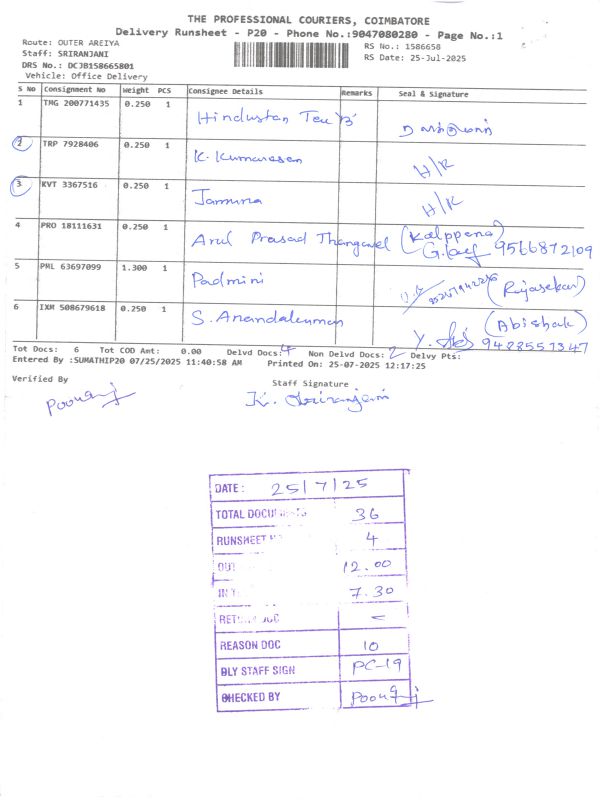 THE PROFESSIONAL COURIERS, COIMBATORE
Delivery Runsheet - P20 - Phone No.:9047080280 - Page No.:1
Route: OUTER AREIYA
RS No.: 1586658
Staff: SRIRANJANI
RS Date: 25-Jul-2025
DRS No.: DCJB158665801
Vehicle: Office Delivery
S No Consignment No Weight PCS Consignee Details Remarks Seal & Signature
1 TMG 200771435 0.250 1 Hindustan Tex 'B'
2 TRP 7928406 0.250 1 K. Kumaresan H/R
3 KVT 3367516 0.250 1 Jamuna H/R
4 PRO 18111631 0.250 1 Arul Prasad Thangavel (Kalppena) 9566872109
5 PML 63697099 1.300 1 Padmini (Rajasekar)
6 IXM 508679618 0.250 1 S. Anandakumar (Abishak) 9428557347
Tot Docs: 6 Tot COD Amt: 0.00 Delvd Docs: 4 Non Delvd Docs: 2 Delvy Pts:
Entered By :SUMATHIP20 07/25/2025 11:40:58 AM Printed On: 25-07-2025 12:17:25
Verified By Staff Signature
K. Sriranjani
DATE: 25/7/25
TOTAL DOCUMENTS 36
RUNSHEET 4
OUT 12.00
IN T 7.30
RETURN DOC -
REASON DOC 10
DLY STAFF SIGN PC-19
CHECKED BY